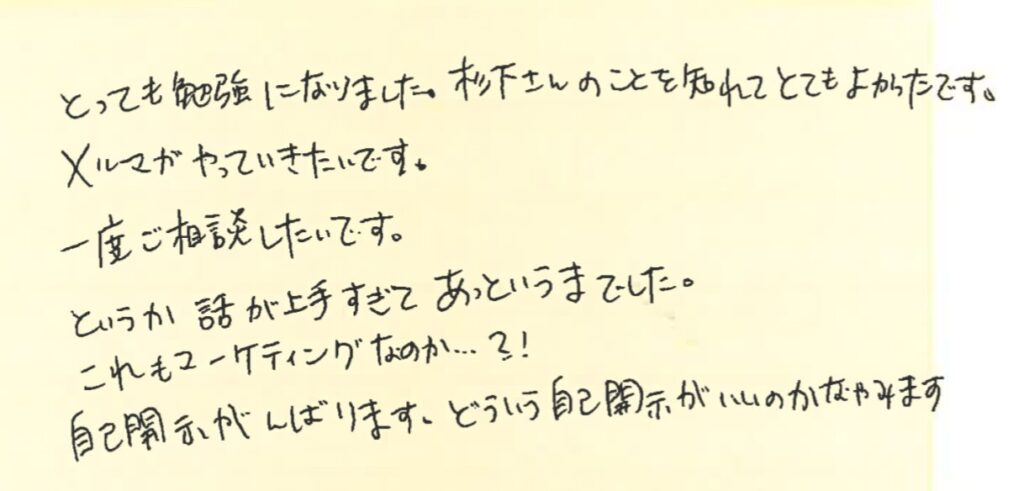 とっても勉強になりました。杉下さんのことを知れてとてもよかったです。
メルマガやっていきたいです。
一度ご相談したいです。
というか話が上手すぎてあっというまでした。
これもマーケティングなのか…?!
自己開示がんばります。どういう自己開示がいいのかなやみます